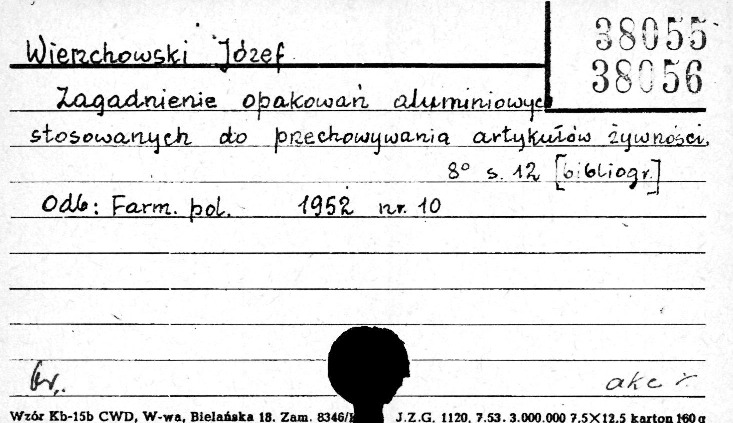 38055
38056
Wierzchowski Józef
Zagadnienie opakowań aluminiowyc
stosowanych do przechowywania artykułów żywności.
8° s. 12 [bibliogr.]
Odb: Farm. pol. 1952 nr. 10
akc
Wzór Kb-15b CWD, W-wa, Bielańska 18. Zam. 8346/ J.Z.G. 1120. 7.53. 3.000.000 7.5×12.5 karton 160 g